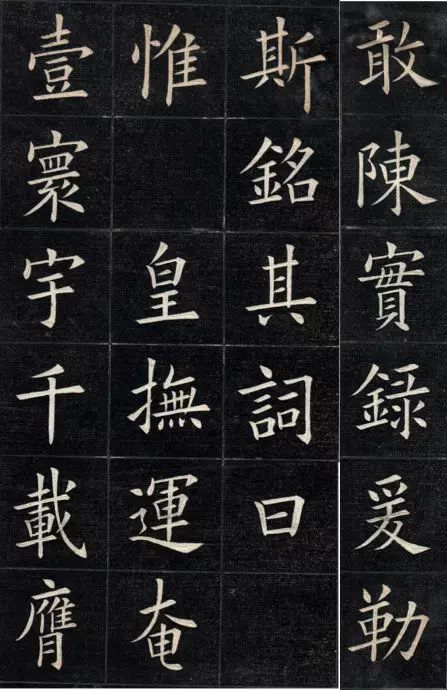 敢陳實録爰勒
斯銘其詞曰
惟皇撫運奄
壹寰宇千載膺